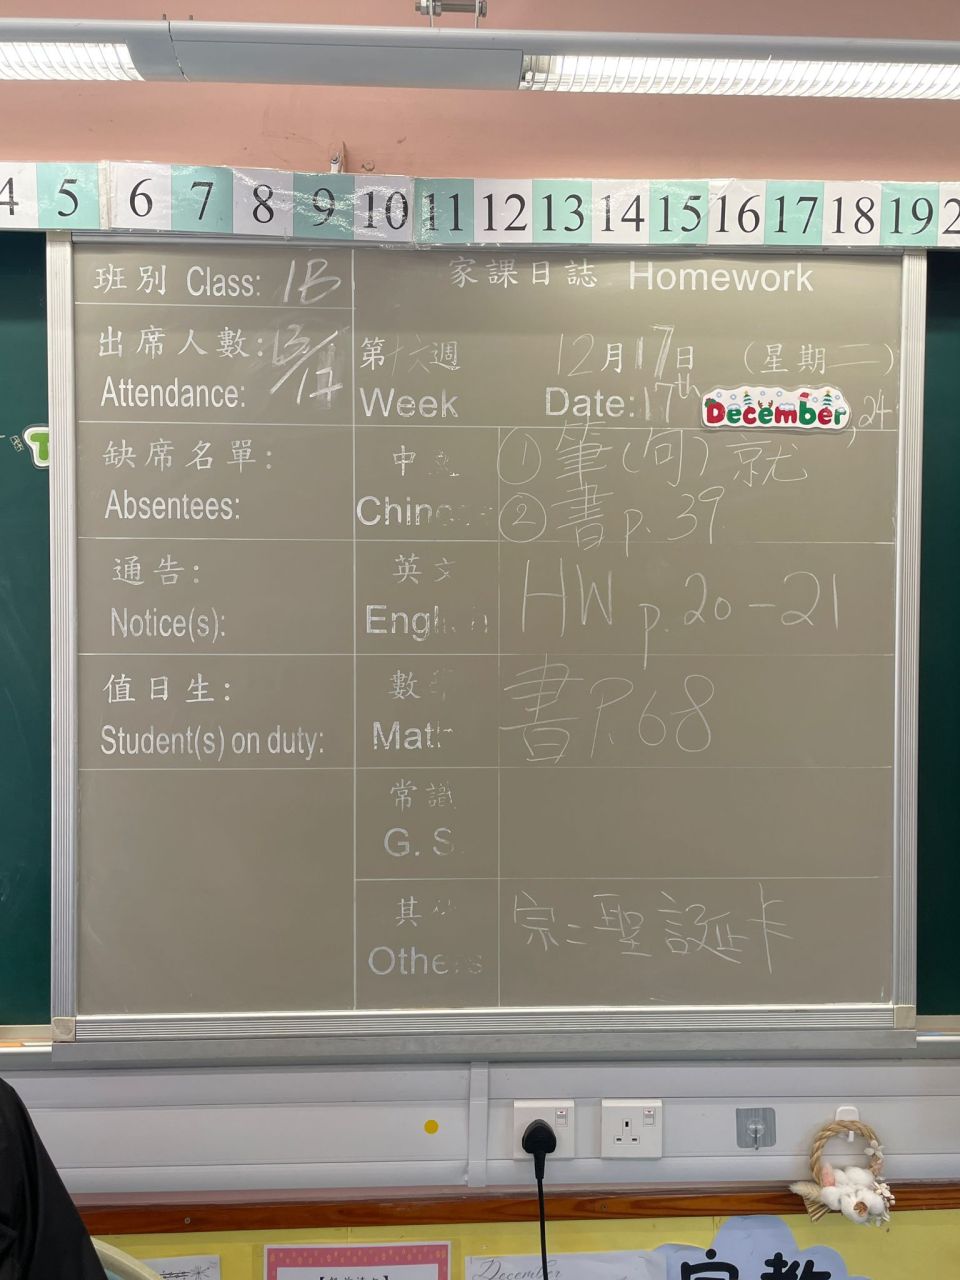 4 5 6 7 8 9 10 11 12 13 14 15 16 17 18 19 2
班別 Class: 1B
家課日誌 Homework
出席人數: 13/17
Attendance:
第十六週 12月17日 (星期二)
Week Date: 17th December, 24
缺席名單:
Absentees:
中
Chin
①筆(句)就
②書 p. 39
通告:
Notice(s):
英文
English
HW p. 20-21
值日生:
Student(s) on duty:
數
Math
書 P. 68
常識
G. S.
其他
Others
宗: 聖誕卡
December
宗教